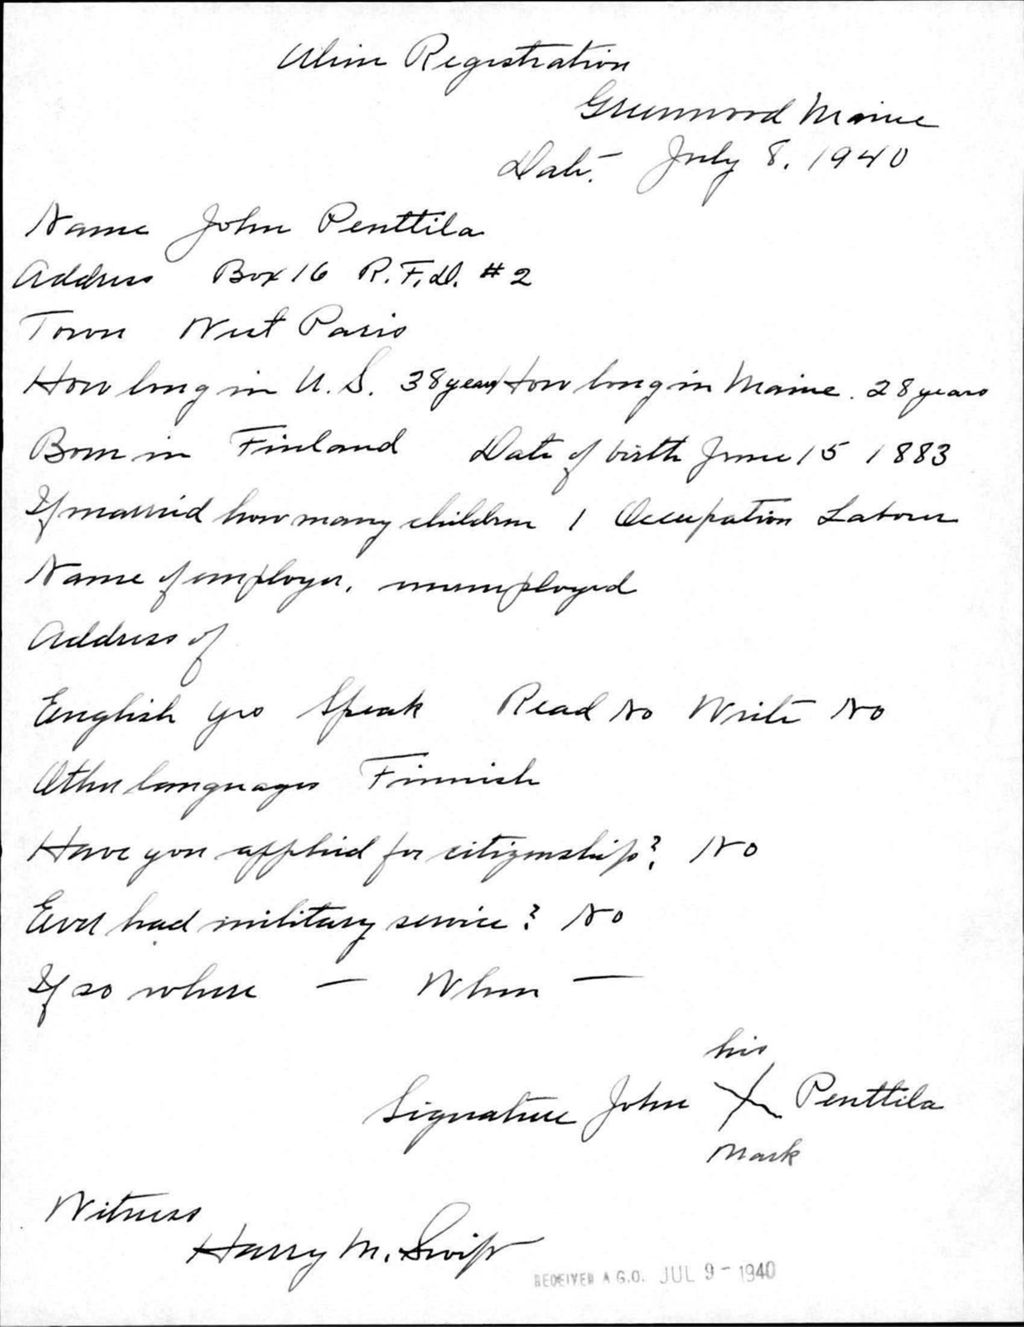 Alien Registration
Greenwood Maine
Date. July 8. 1940
Name John Penttila
Address Box 16 R.F.D. #2
Town West Paris
How long in U.S. 38 years How long in Maine. 28 years
Born in Finland Date of birth June 15 1883
If married how many children 1 Occupation Laborer
Name of employer. unemployed
Address of
English yes Speak Read No Write No
Other languages Finnish
Have you applied for citizenship? No
Ever had military service? No
If so where — When —
his
Signature John X Penttila
Mark
Witness
Harry M. Swift
RECEIVED A.G.O. JUL 9 - 1940